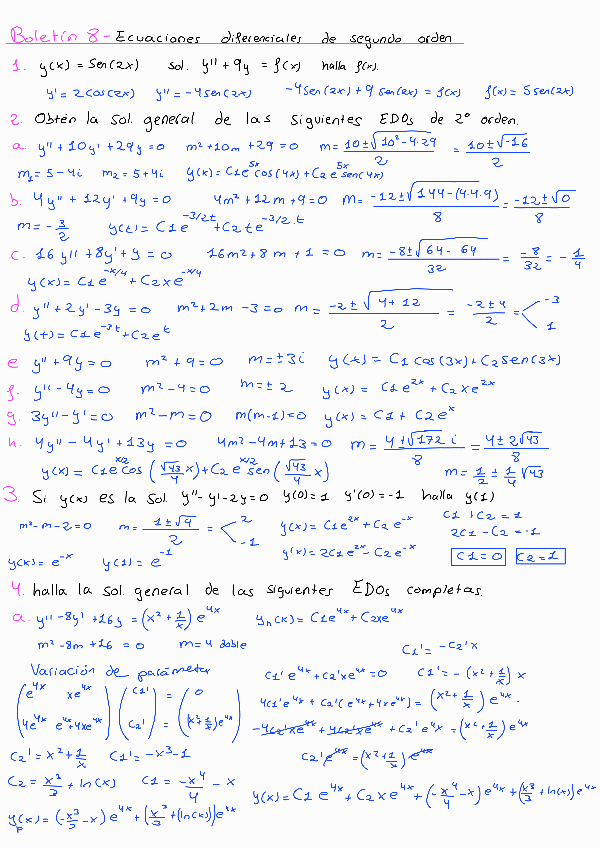 Boletín 8 - Ecuaciones diferenciales de segundo orden
1. y(x) = Sen(2x) sol. y'' + 9y = f(x) halla f(x).
y' = 2cos(2x) y'' = -4sen(2x) -4sen(2x) + 9 sen(2x) = f(x) f(x) = 5sen(2x)
2. Obtén la sol. general de las siguientes EDOs de 2º orden.
a. y'' + 10y' + 29y = 0 m² + 10m + 29 = 0 m = (10 ± √(10² - 4·29))/2 = (10 ± √-16)/2
m1 = 5 - 4i m2 = 5 + 4i y(x) = C1e^5x cos(4x) + C2e^5x sen(4x)
b. 4y'' + 12y' + 9y = 0 4m² + 12m + 9 = 0 m = (-12 ± √(144 - (4·4·9)))/8 = (-12 ± √0)/8
m = -3/2 y(t) = C1e^(-3/2t) + C2te^(-3/2.t)
c. 16y'' + 8y' + y = 0 16m² + 8m + 1 = 0 m = (-8 ± √(64 - 64))/32 = -8/32 = -1/4
y(x) = C1e^(-x/4) + C2xe^(-x/4)
d. y'' + 2y' - 3y = 0 m² + 2m - 3 = 0 m = (-2 ± √(4 + 12))/2 = (-2 ± 4)/2 = < -3 1
y(t) = C1e^(-3t) + C2e^t
e y'' + 9y = 0 m² + 9 = 0 m = ±3i y(x) = C1 cos(3x) + C2 sen(3x)
f. y'' - 4y = 0 m² - 4 = 0 m = ±2 y(x) = C1e^2x + C2xe^2x
g. 3y'' - y' = 0 m² - m = 0 m(m-1) = 0 y(x) = C1 + C2e^x
h. 4y'' - 4y' + 13y = 0 4m² - 4m + 13 = 0 m = (4 ± √172 i)/8 = (4 ± 2√43)/8
y(x) = C1e^(x/2) cos(√43/4 x) + C2e^(x/2) sen(√43/4 x) m = 1/2 ± 1/4 √43
3. Si y(x) es la sol. y'' - y' - 2y = 0 y(0) = 1 y'(0) = -1 halla y(1)
m² - m - 2 = 0 m = (1 ± √9)/2 = < 2 -1 y(x) = C1e^2x + C2e^-x C1 + C2 = 1
y'(x) = 2C1e^2x - C2e^-x 2C1 - C2 = -1
y(x) = e^-x y(1) = e^-1 C1 = 0 C2 = 1
4. halla la sol. general de las siguientes EDOs completas.
a. y'' - 8y' + 16y = (x² + 1/x) e^4x yh(x) = C1e^4x + C2xe^4x
m² - 8m + 16 = 0 m = 4 doble C1' = -C2'x
Variación de parámeter C1'e^4x + C2'xe^4x = 0 C1' = -(x² + 1/x) x
(e^4x xe^4x) (C1') = (0) 4C1'e^4x + C2'(e^4x + 4xe^4x) = (x² + 1/x) e^4x.
(4e^4x e^4x+4xe^4x) (C2') = ((x²+1/x)e^4x) -4C2'xe^4x + 4C2'xe^4x + C2'e^4x = (x² + 1/x) e^4x
C2' = x² + 1/x C1' = -x³ - 1 C2'e^4x = (x² + 1/x) e^4x
C2 = x³/3 + ln(x) C1 = -x⁴/4 - x y(x) = C1 e^4x + C2xe^4x + (-x⁴/4 - x) e^4x + (x³/3 + ln(x)) e^4x
yp(x) = (-x³/2 - x) e^4x + (x³/3 + (ln(x)) e^4x